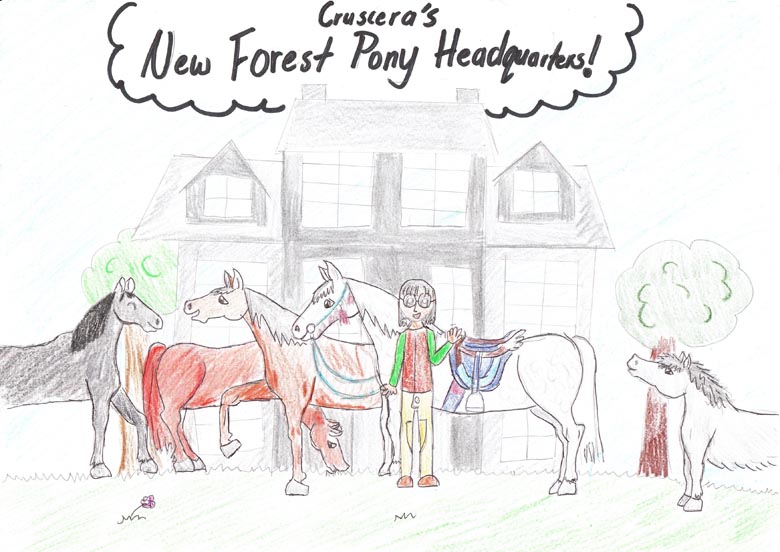 Cruscera's
New Forest Pony Headquarters!